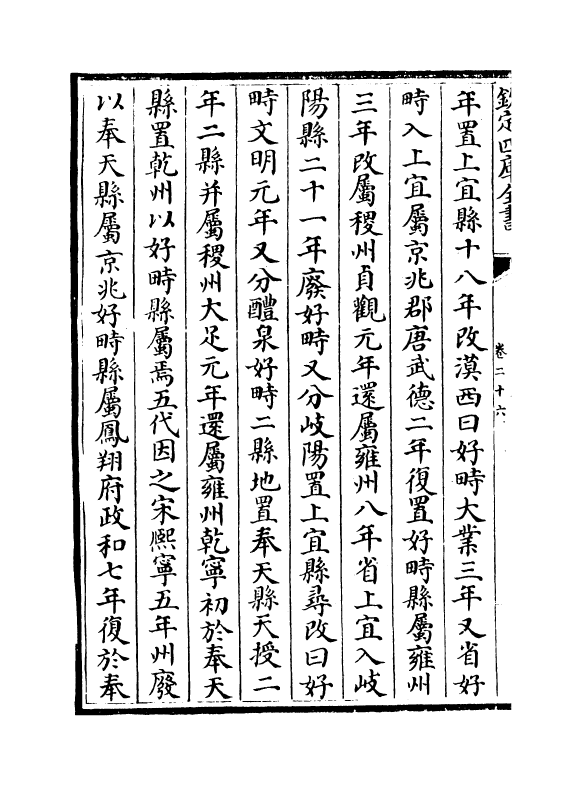 欽定四庫全書
卷二十六
年置上宜縣十八年改漠西曰好畤大業三年又省好
畤入上宜屬京兆郡唐武德二年復置好畤縣屬雍州
三年改屬稷州貞觀元年還屬雍州八年省上宜入岐
陽縣二十一年廢好畤又分岐陽置上宜縣尋改曰好
畤文明元年又分醴泉好畤二縣地置奉天縣天授二
年二縣并屬稷州大足元年還屬雍州乾寧初於奉天
縣置乾州以好畤縣屬焉五代因之宋熙寧五年州廢
以奉天縣屬京兆好畤縣屬鳳翔府政和七年復於奉